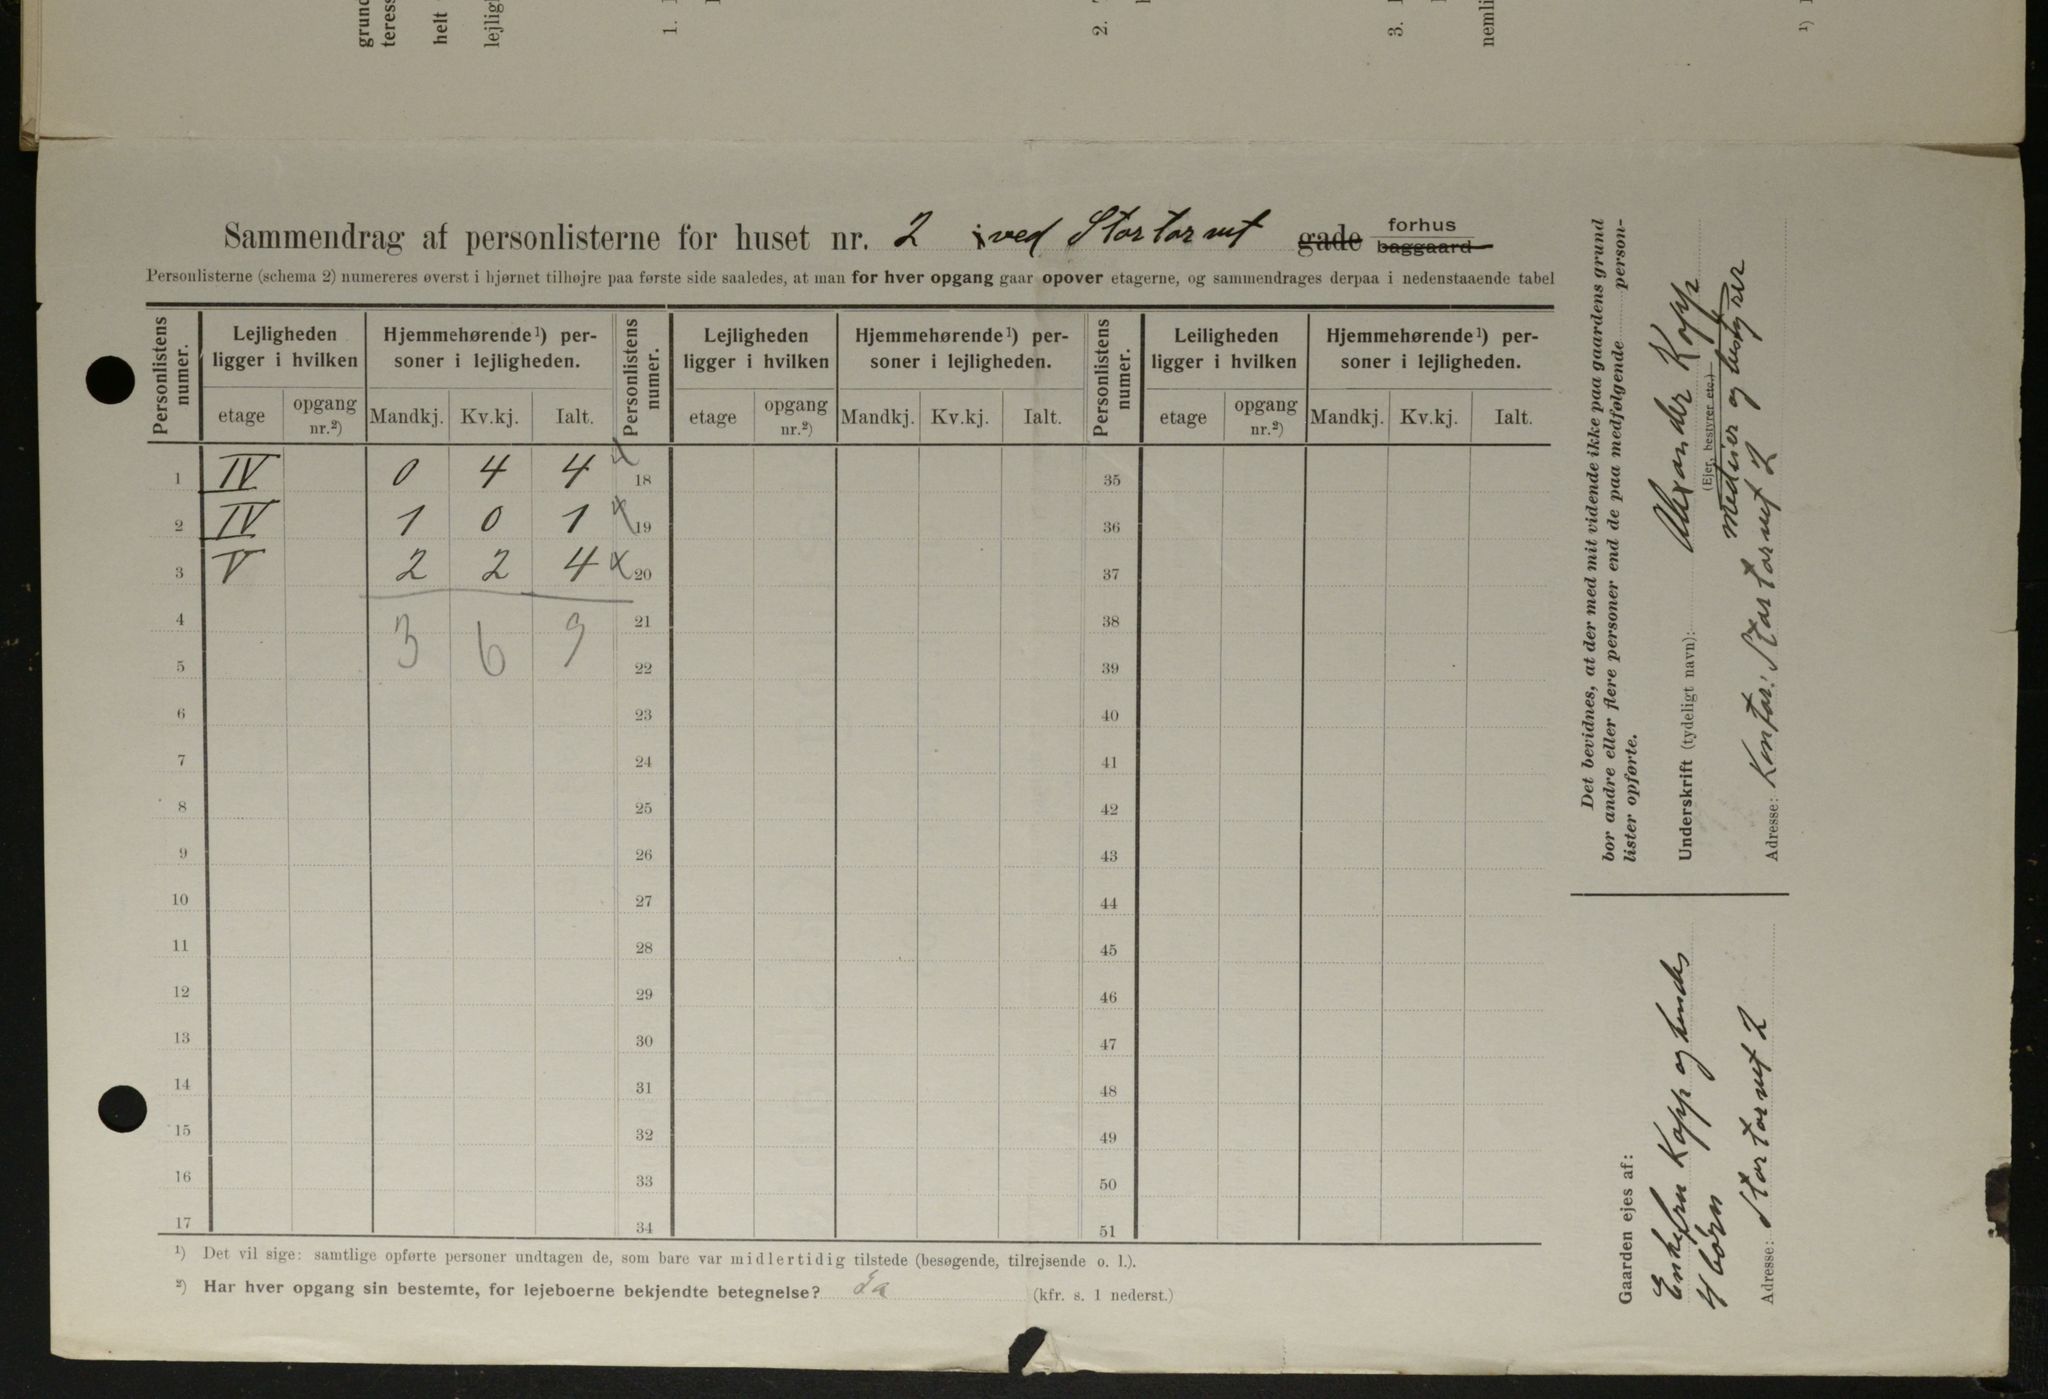 Sammendrag af personlisterne for huset nr. 2 ved Stortorvet gade forhus baggaard
Personlisterne (schema 2) numereres øverst i hjørnet tilhøjre paa første side saaledes, at man for hver opgang gaar opover etagerne, og sammendrages derpaa i nedenstaaende tabel
Personlistens numer. Lejligheden ligger i hvilken Hjemmehørende¹) personer i lejligheden. Personlistens numer. Lejligheden ligger i hvilken Hjemmehørende¹) personer i lejligheden. Personlistens numer. Leiligheden ligger i hvilken Hjemmehørende¹) personer i lejligheden.
etage opgang nr.²) Mandkj. Kv.kj. Ialt. etage opgang nr.²) Mandkj. Kv.kj. Ialt. etage opgang nr.²) Mandkj. Kv.kj. Ialt.
1 IV 0 4 4 x 18 35
2 IV 1 0 1 x 19 36
3 V 2 2 4 x 20 37
4 21 38
3 6 9
5 22 39
6 23 40
7 24 41
8 25 42
9 26 43
10 27 44
11 28 45
12 29 46
13 30 47
14 31 48
15 32 49
16 33 50
17 34 51
¹) Det vil sige: samtlige opførte personer undtagen de, som bare var midlertidig tilstede (besøgende, tilrejsende o. l.).
²) Har hver opgang sin bestemte, for lejeboerne bekjendte betegnelse? Ja (kfr. s. 1 nederst.)
Det bevidnes, at der med mit vidende ikke paa gaardens grund
bor andre eller flere personer end de paa medfølgende personlister opførte.
Underskrift (tydeligt navn): Alexander Kopp
(Ejer, bestyrer etc.)
medeier og bestyrer
Adresse: Kontor: Stortorvet 2
Gaarden ejes af:
Enkefru Kopp og hendes
4 børn
Adresse: Stortorvet 2
grund
teress
helt
lejligh
1.
2.
3.
nemli
¹)